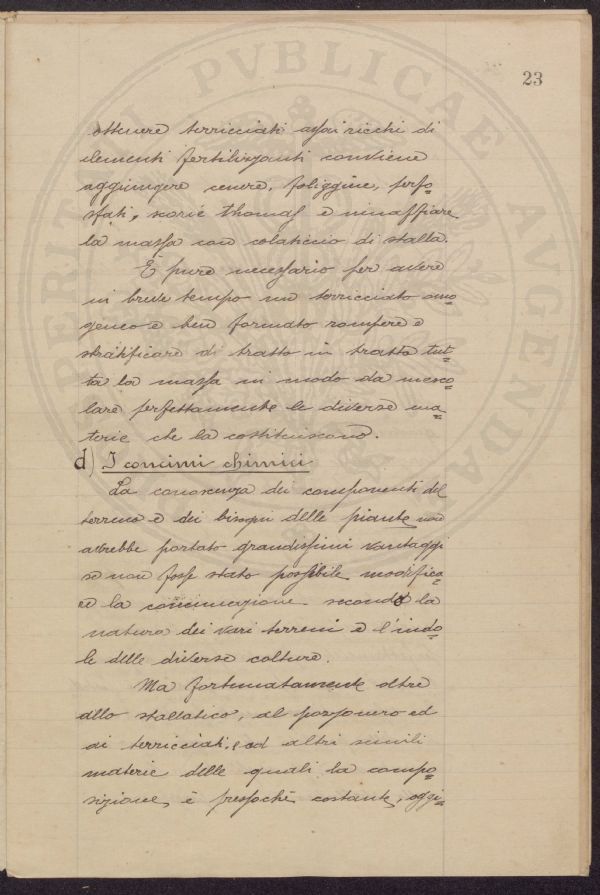 23
ottenere terricciati assai ricchi di
elementi fertilizzanti conviene
aggiungere cenere, foliggine, perfo=
sfati, scorie Thomas e innaffiare
la massa con colaticcio di stalla.
È pure necessario per avere
in breve tempo un terricciato omo=
geneo e ben formato rompere e
stratificare di tratto in tratto tut=
ta la massa in modo da mesco=
lare perfettamente le diverse ma=
terie che la costituiscono.
d) I concimi chimici
La conoscenza dei componenti del
terreno e dei bisogni delle piante non
avrebbe portato grandissimi vantaggi
se non fosse stato possibile modifica=
re la concimazione secondo la
natura dei vari terreni e l'indo=
le delle diverse colture.
Ma fortunatamente oltre
allo stallatico, al pozzonero ed
ai terricciati, e ad altri simili
materie delle quali la compo=
sizione, è pressochè costante, oggi=
PVBLICAE
AVGENDAE